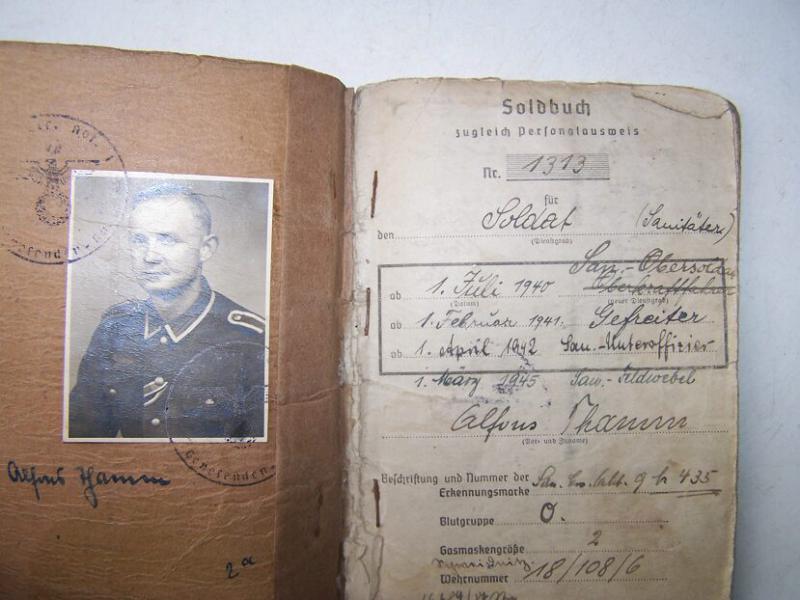 Alfons Thamm
2a
Soldbuch
zugleich Personalausweis
Nr. 1313
für
den Soldat (Sanitäter)
(Dienstgrad)
San.-Obersoldat
ab 1. Juli 1940 Oberkraftfahrer
(Datum) (neuer Dienstgrad)
ab 1. Februar 1941. Gefreiter
ab 1. April 1942 San.-Unteroffizier
1. März 1945 San.-Feldwebel
Alfons Thamm
(Vor- und Zuname)
Beschriftung und Nummer der
Erkennungsmarke 435
Blutgruppe O.
Gasmaskengröße 2
Schweidnitz
Wehrnummer 18/108/6